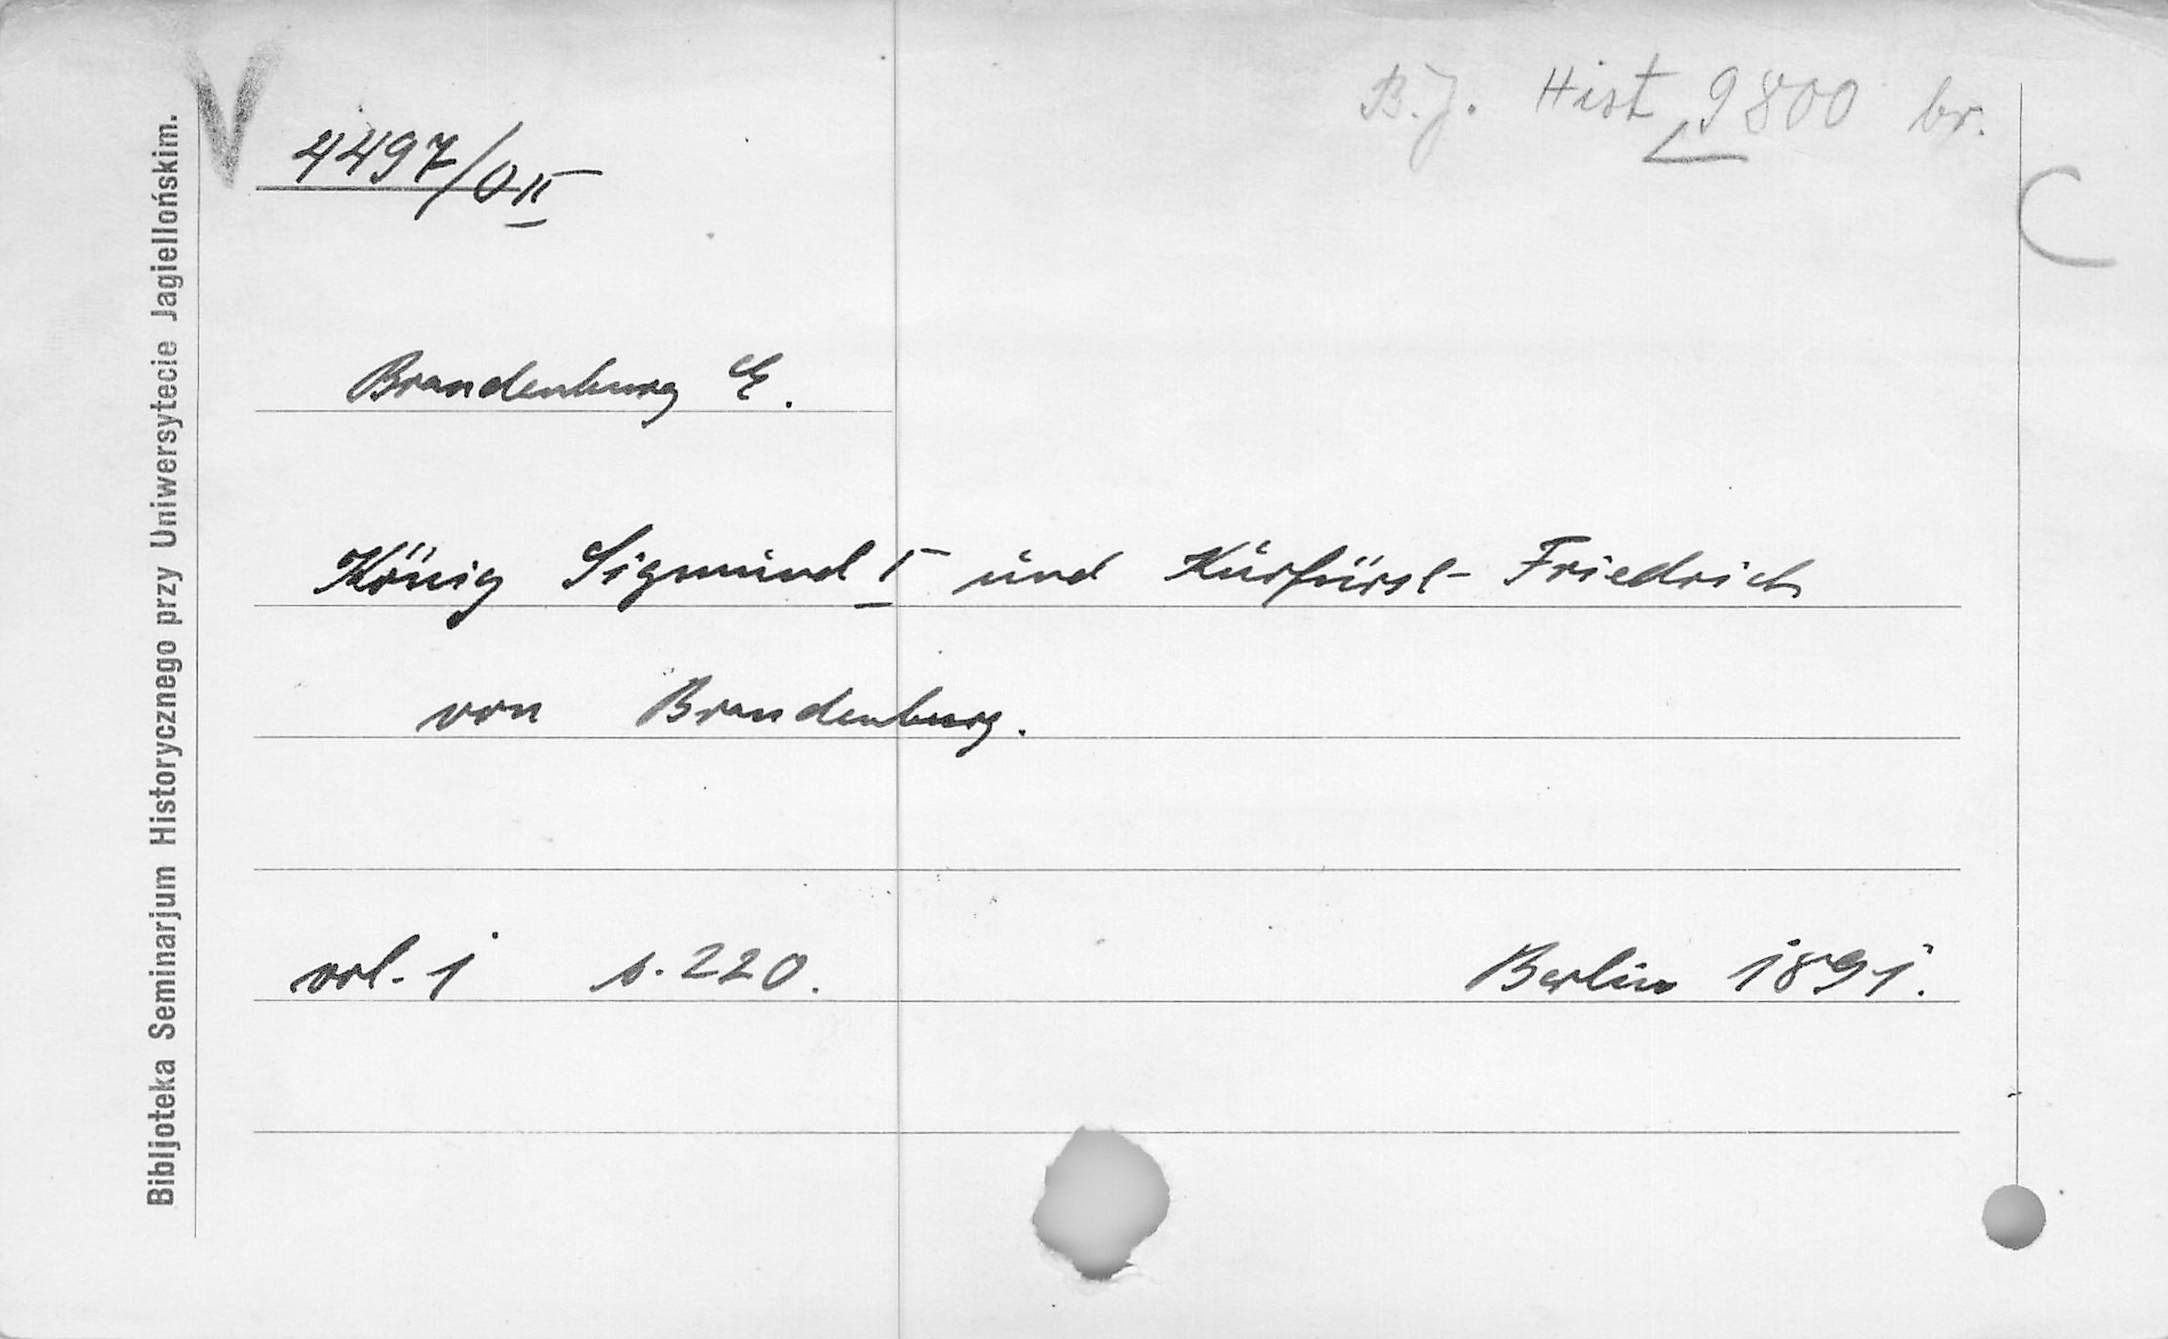 V
B.J. Hist 9800 br.
4497/O II
C
Brandenburg E.
König Sigmund I und Kurfürst Friedrich
von Brandenburg.
vol. 1 s. 220. Berlin 1891.
Bibljoteka Seminarjum Historycznego przy Uniwersytecie Jagiellońskim.